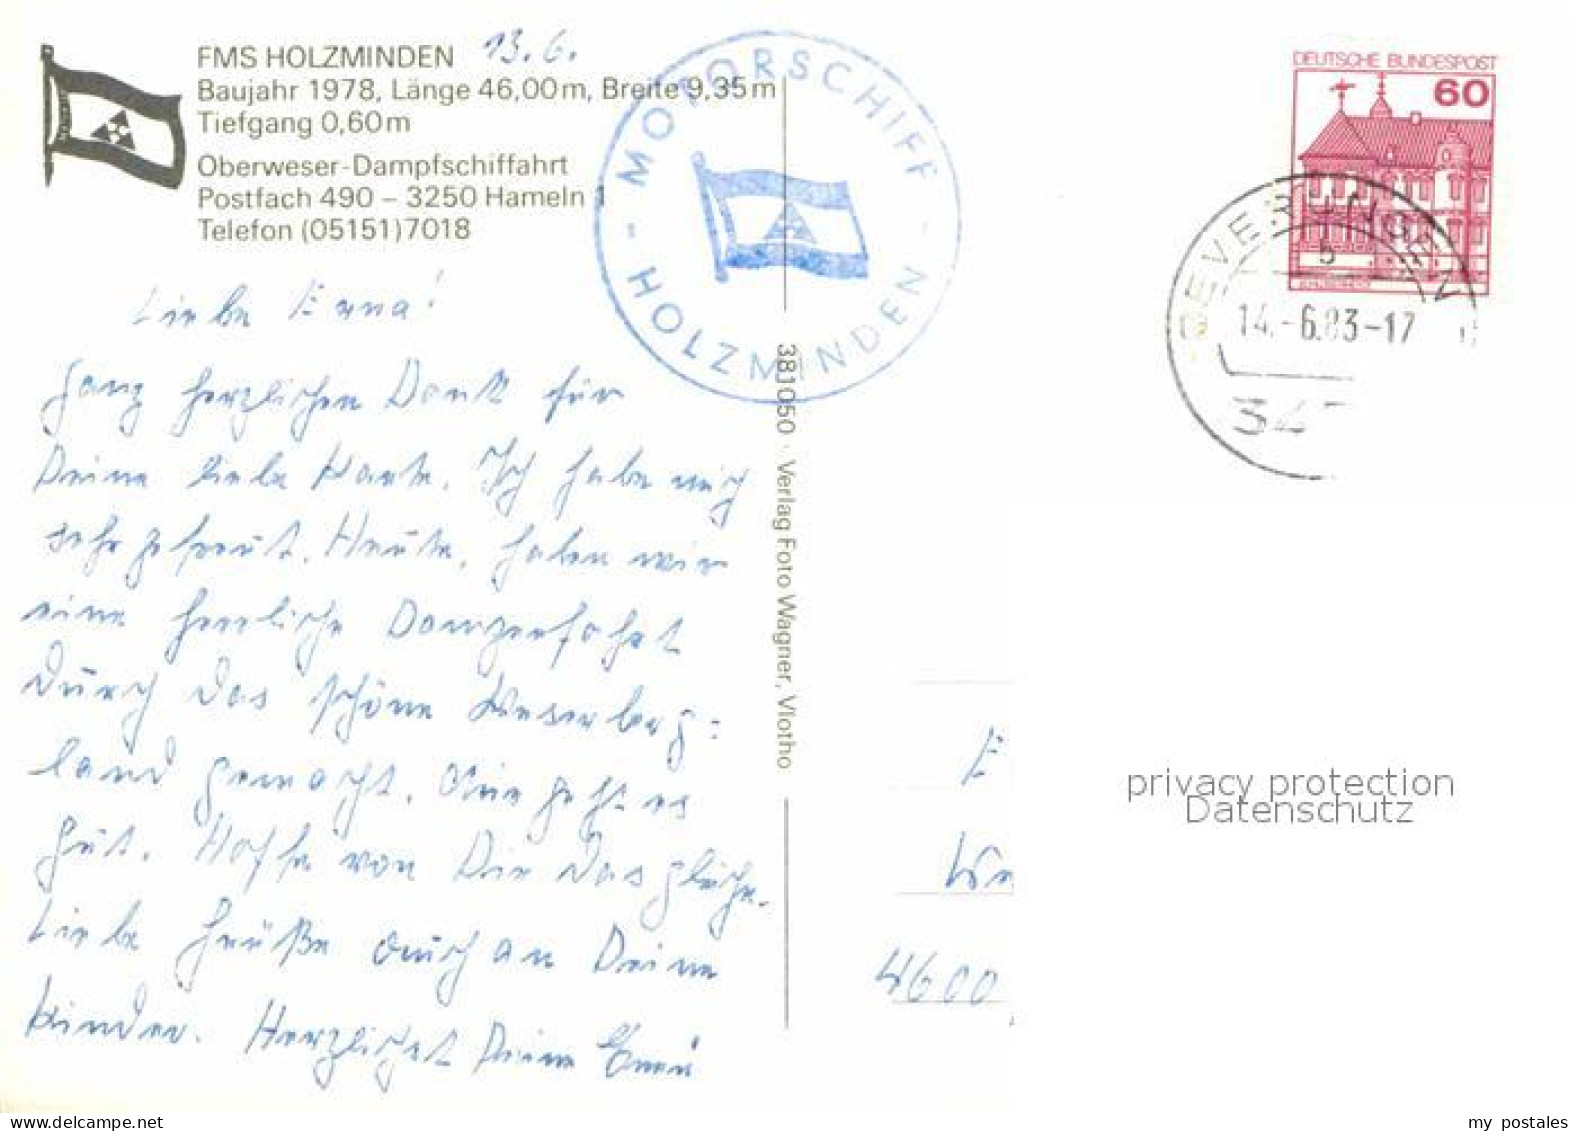 FMS HOLZMINDEN 13.6.
Baujahr 1978, Länge 46,00m, Breite 9,35m
Tiefgang 0,60m
Oberweser-Dampfschiffahrt
Postfach 490 – 3250 Hameln 1
Telefon (05151)7018
Liebe Erna!
Ganz herzlichen Dank für
Deine liebe Karte. Ich habe mich
sehr gefreut. Heute, haben wir
eine herrliche Dampferfahrt
durch das schöne Weserberg=
land gemacht. Mir geht es
gut. Hoffe von Dir das gleiche.
Liebe Grüße auch an Deine
Kinder. Herzlichst Deine
- MOTORSCHIFF -
HOLZMINDEN
381050 · Verlag Foto Wagner, Vlotho
DEUTSCHE BUNDESPOST
60
BEVERUNGEN
b
14.-6.83-17
347
E
4600
privacy protection
Datenschutz
my postales